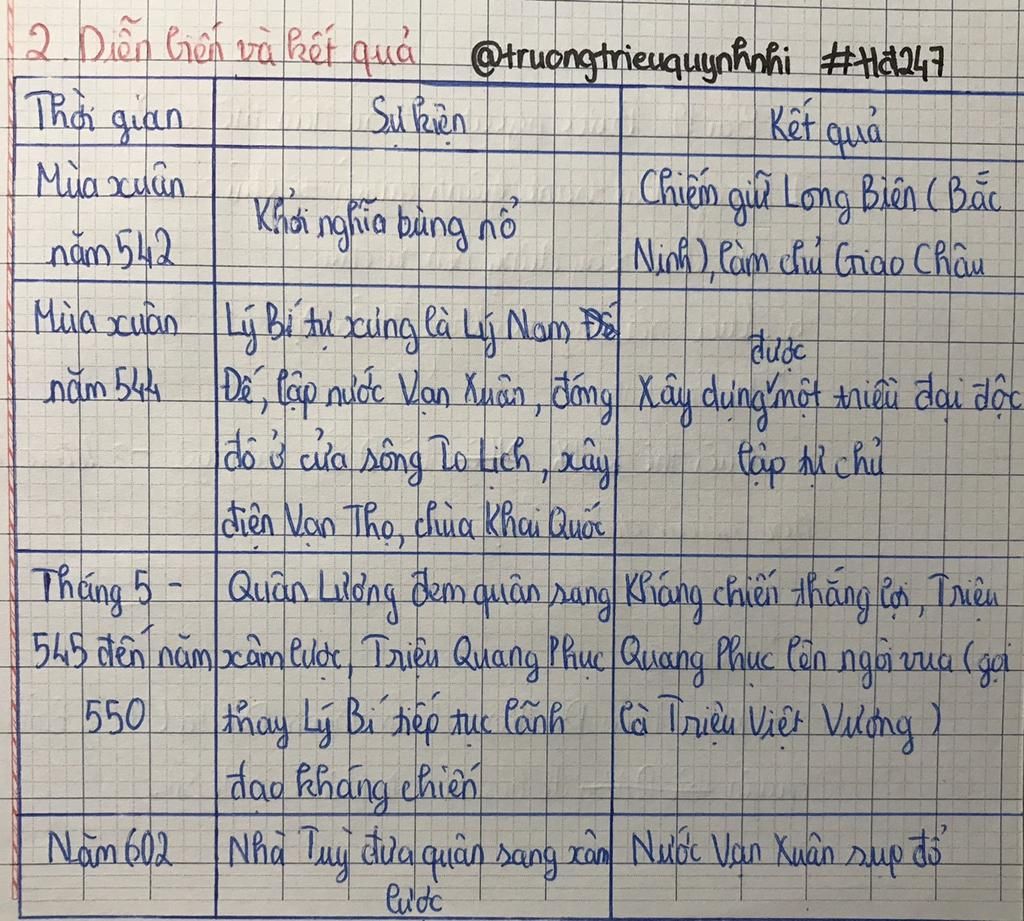 2. Diễn biến và kết quả @truongtrieuquynhnhi #Hd247
Thời gian
Sự kiện
Kết quả
Mùa xuân
năm 542
Khởi nghĩa bùng nổ
Chiếm giữ Long Biên (Bắc
Ninh), làm chủ Giao Châu
Mùa xuân
năm 544
Lý Bí tự xưng là Lý Nam
Đế, lập nước Vạn Xuân, đóng
đô ở cửa sông Tô Lịch, xây
điện Vạn Thọ, chùa Khai Quốc
được
Xây dựng một triều đại độc
lập tự chủ
Tháng 5 -
545 đến năm
550
Quân Lương đem quân sang
xâm lược, Triệu Quang Phục
thay Lý Bí tiếp tục lãnh
đạo kháng chiến
Kháng chiến thắng lợi, Triệu
Quang Phục lên ngôi vua (gọi
là Triệu Việt Vương)
Năm 602
Nhà Tuỳ đưa quân sang xâm
lược
Nước Vạn Xuân sụp đổ